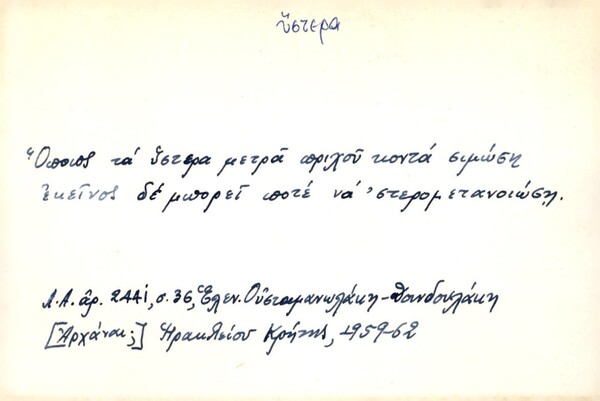 ὕστερα
Ὅποιος τά ὕστερα μετρᾶ πριχοῦ κοντά σιμώσῃ
ἐκεῖνος δέ μπορεῖ ποτέ νά 'στερομετανοιώσῃ.
Λ.Α. ἀρ. 2441, σ. 36, Ἑλεν. Οὐσταμανωλάκη-
[Ἀρχάναι;] Ἡρακλείου Κρήτης, 1959-62